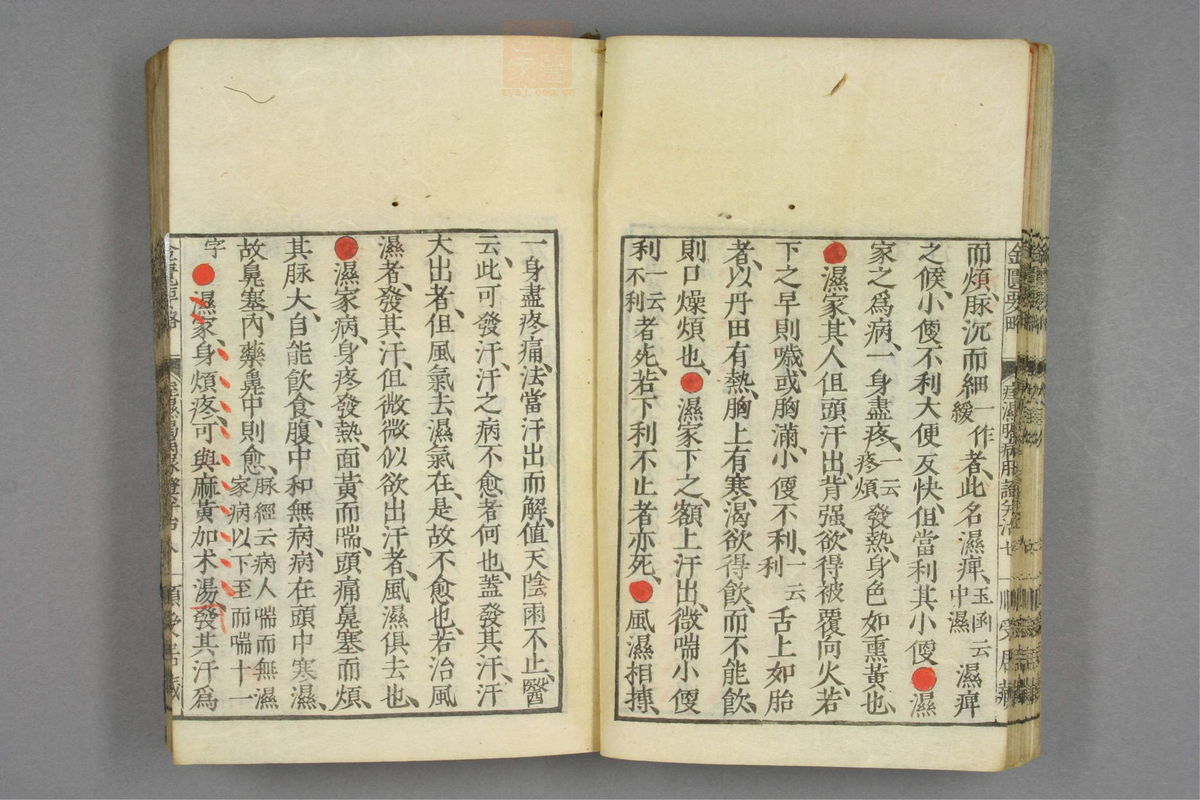 金匱要略
而煩、脉沉而細一作緩者、此名濕痺、玉函云中濕濕痺
之候、小便不利大便反快、但當利其小便●濕
家之爲病、一身盡疼、一云疼煩發熱、身色如熏黃也、
●濕家、其人但頭汗出、背强、欲得被覆向火、若
下之早則噦、或胸滿、小便不利、一云利舌上如胎
者、以丹田有熱、胸上有寒、渴欲得飲、而不能飲、
則口燥煩也、●濕家下之、額上汗出、微喘小便
利一云不利者死、若下利不止者亦死、●風濕相摶、
一身盡疼痛、法當汗出而解、値天陰雨不止、醫
云、此可發汗、汗之病不愈者何也、蓋發其汗、汗
大出者、但風氣去、濕氣在、是故不愈也、若治風
濕者、發其汗、但微微似欲出汗者、風濕俱去也、
●濕家病、身疼發熱、面黃而喘、頭痛鼻塞而煩、
其脉大、自能飲食、腹中和無病、病在頭中寒濕、
故鼻塞、內藥鼻中則愈、脉經云病人喘而無濕家病以下至而喘十一
字●濕家、身煩疼、可與麻黃加朮湯、發其汗爲